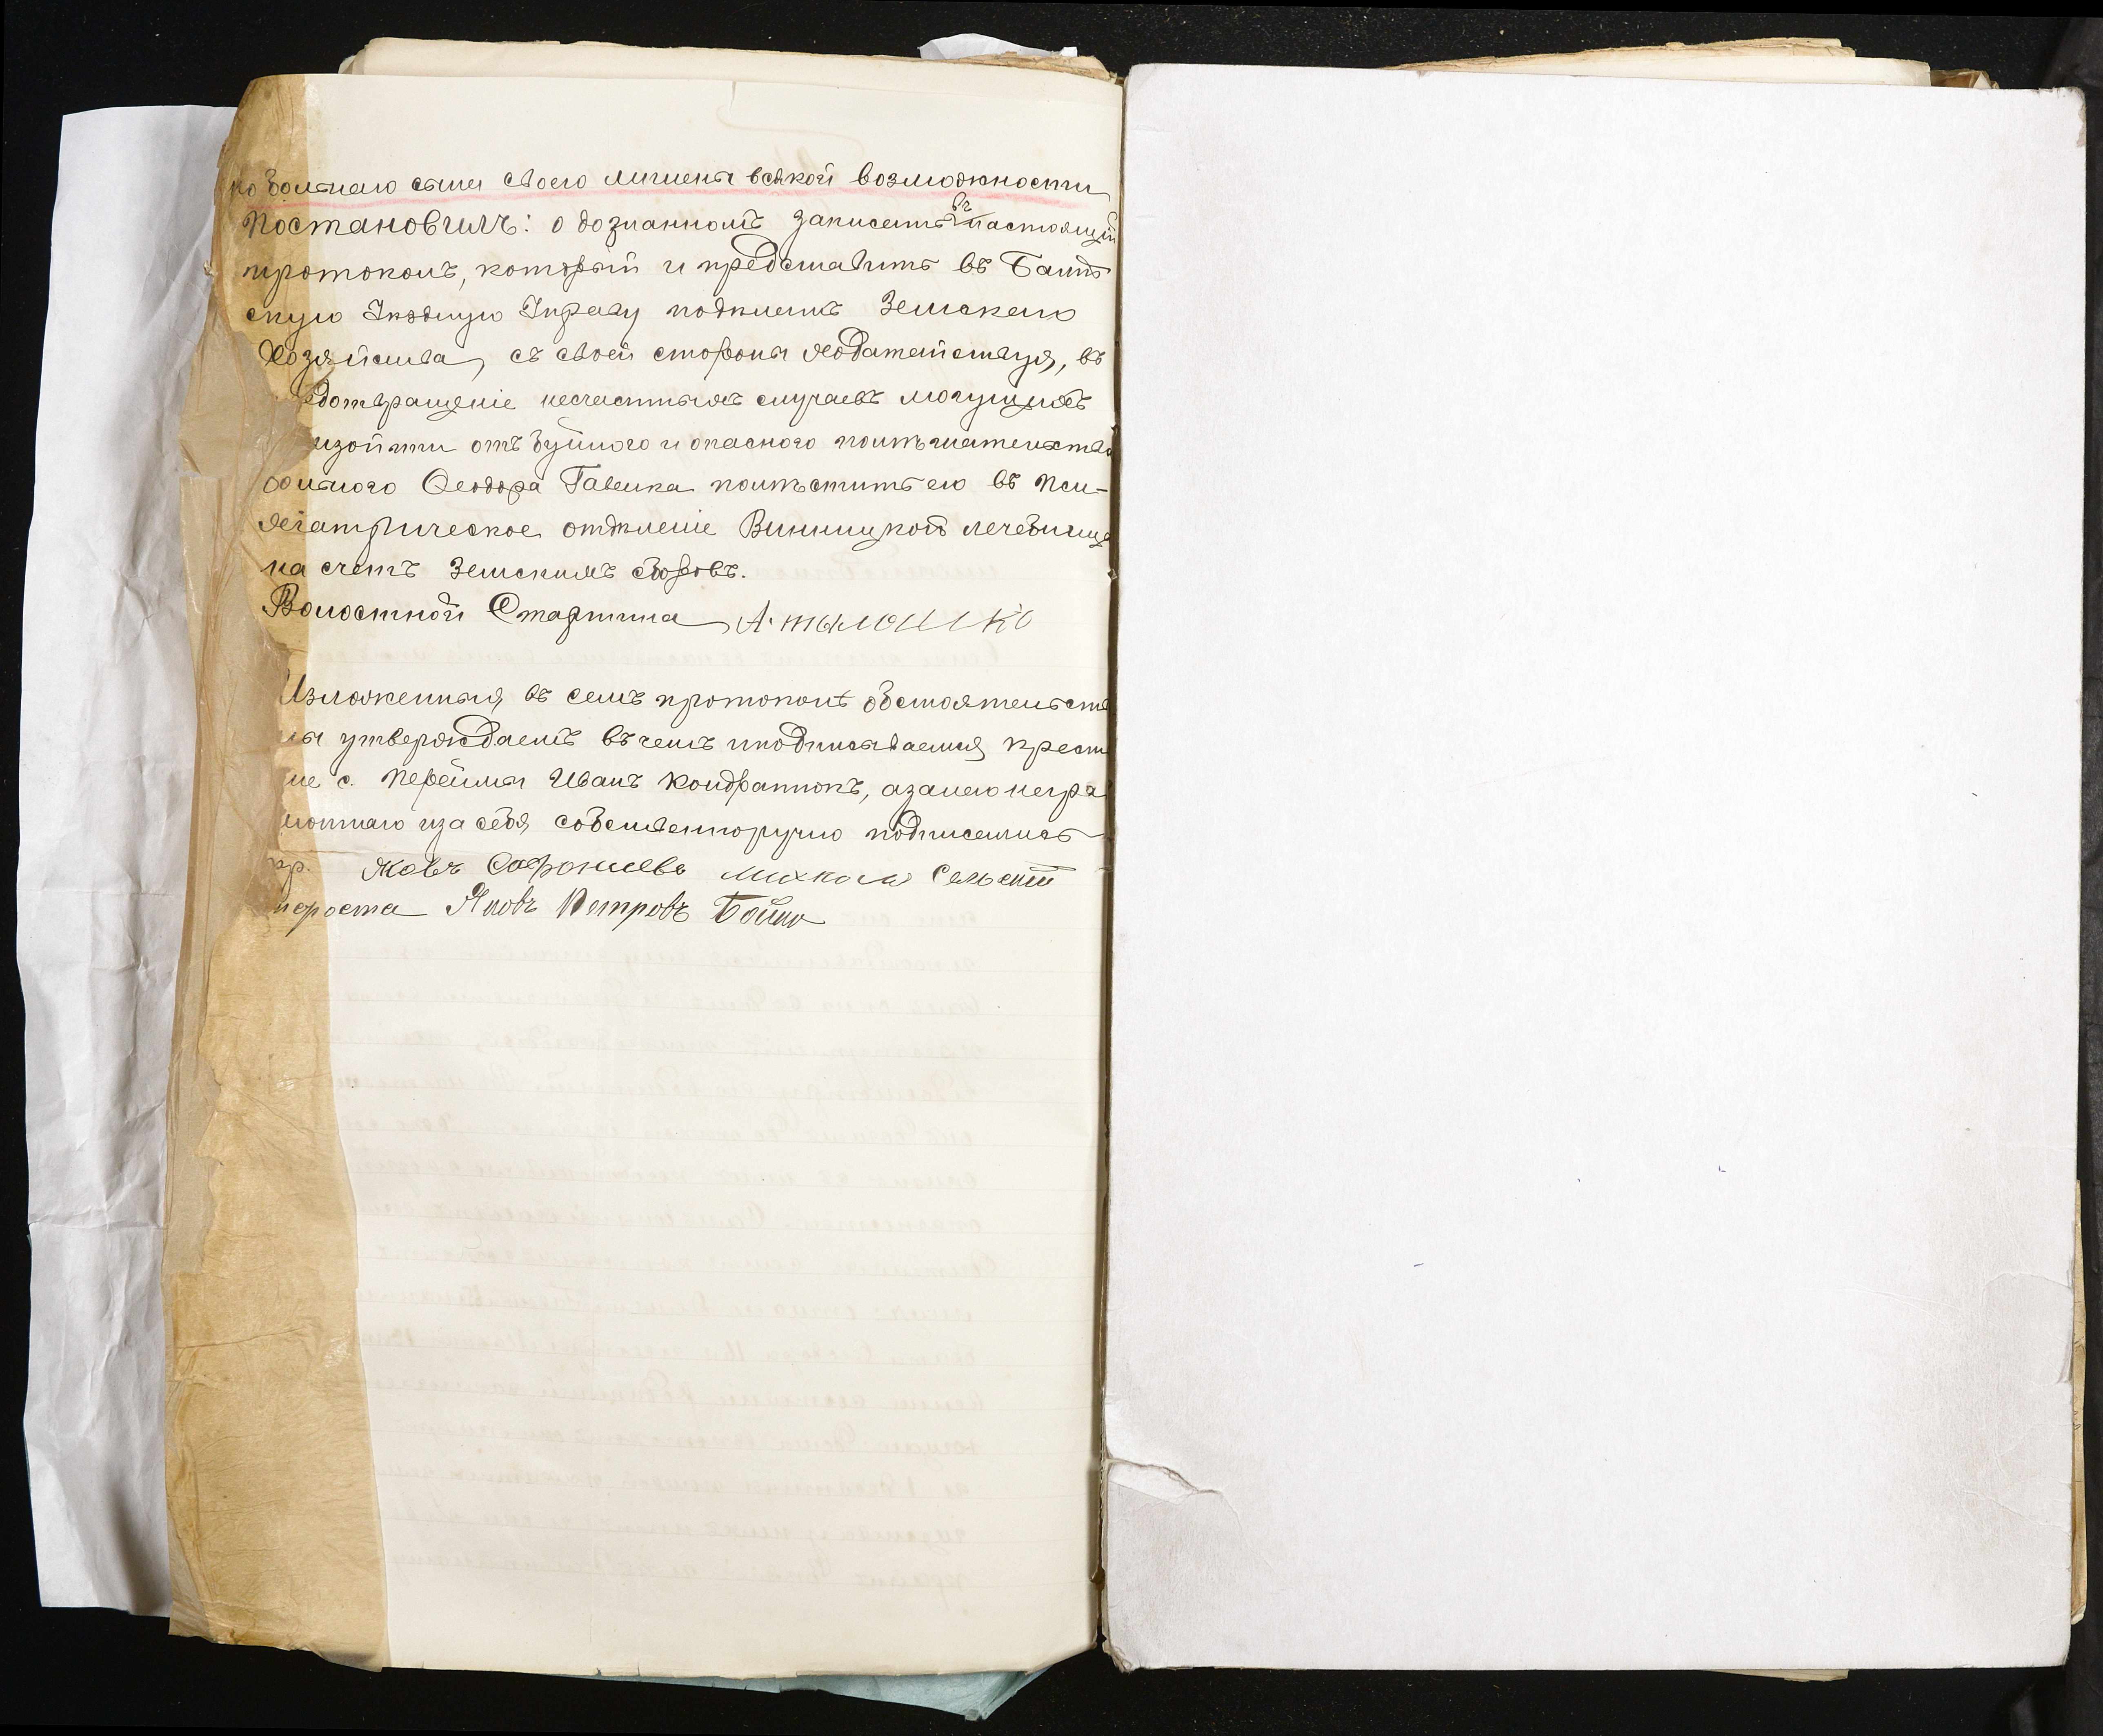 но больнаго сына своего лишены всякой возможности
Постановилъ: о дознанномъ записать въ настоящій
протоколъ, который и представить въ Балт
скую Уѣздную Управу по дѣламъ Земскаго
Хозяйства, съ своей стороны ходатайствуя, въ
едотвращеніе несчастныхъ случаевъ могущихъ
изойти отъ буйного и опасного помѣшательства
больного Феодора Гавлика помѣстить его въ Пси-
хіатрическое отдѣленіе Винницкой лечебницы
на счетъ Земскихъ сборовъ.
Волостной Старшина
Изложенныя въ семъ протоколѣ обстоятельства
мы утверждаемъ въ чемъ и подписываемся крестья
не с. Переймы Иванъ Кондратюкъ, а за него негра
мотнаго и за себя собственноручно подписались
кр. Яковъ Софроніевъ Сельскій
староста Яковъ Петровъ Бойко